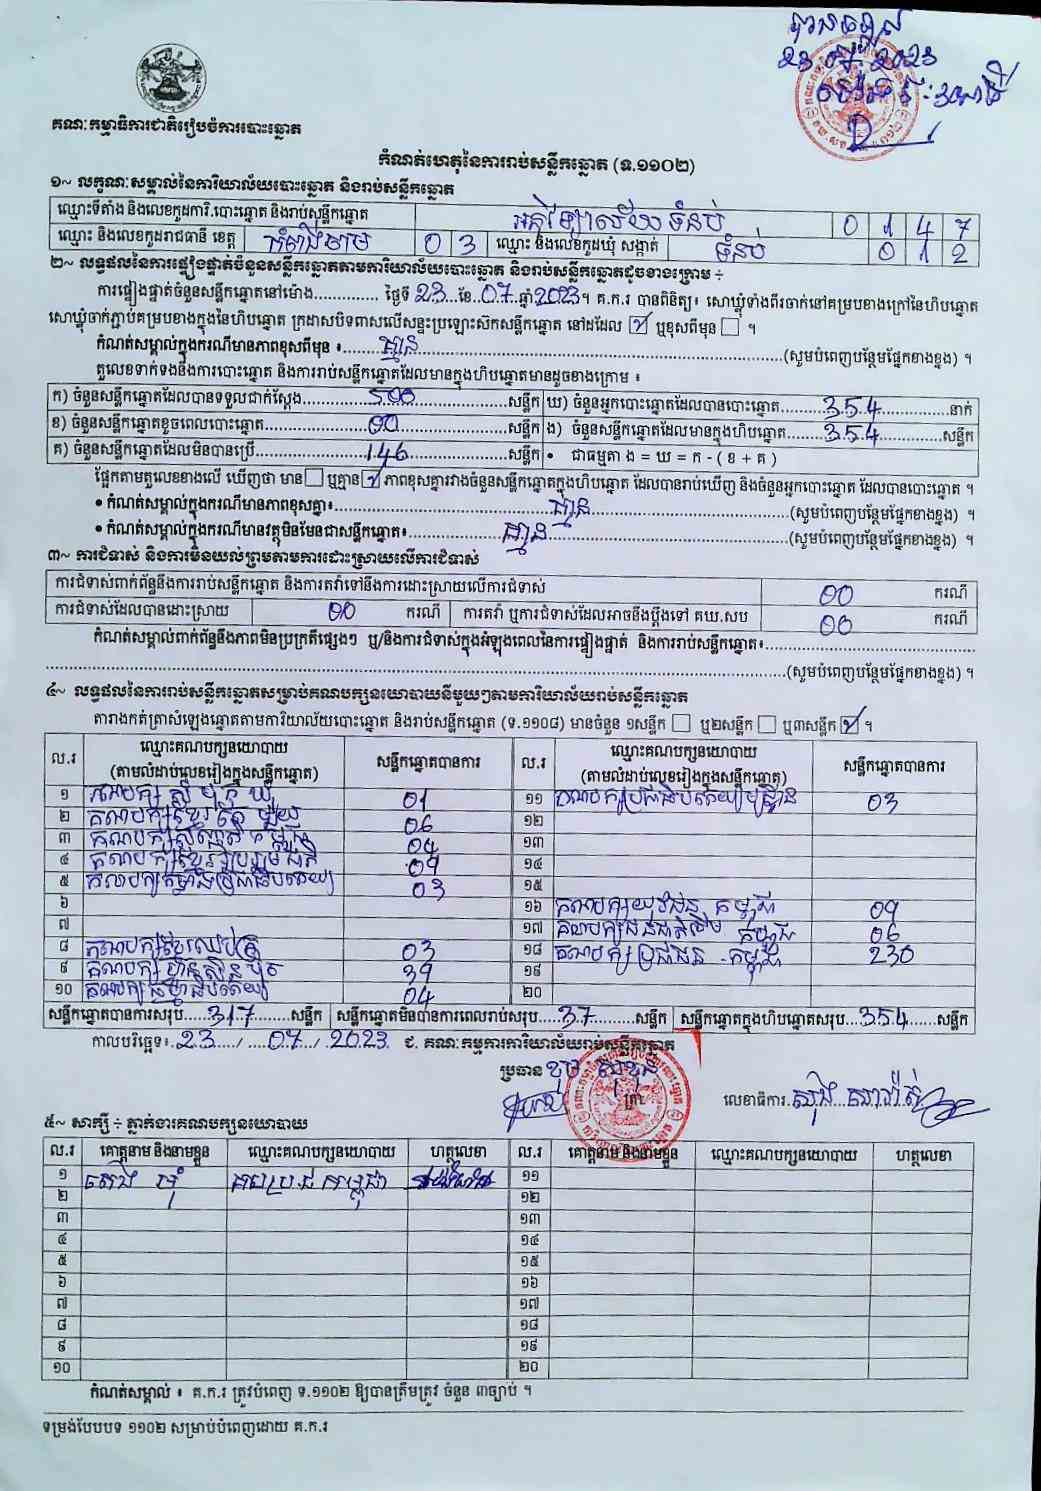 បានឃើញ
23 កក្កដា 2023
គណៈកម្មាធិការជាតិរៀបចំការបោះឆ្នោត
កំណត់ហេតុនៃការរាប់សន្លឹកឆ្នោត (ទ.១១០២)
១~ លក្ខណៈសម្គាល់នៃការិយាល័យបោះឆ្នោត និងរាប់សន្លឹកឆ្នោត
ឈ្មោះទីតាំង និងលេខកូដការិ.បោះឆ្នោត និងរាប់សន្លឹកឆ្នោត អនុវិទ្យាល័យ ទំនប់ 0 1 4 7
ឈ្មោះ និងលេខកូដរាជធានី ខេត្ត កំពង់ចាម 0 3 ឈ្មោះ និងលេខកូដឃុំ សង្កាត់ ទំនប់ 0 1 2
២~ លទ្ធផលនៃការផ្ទៀងផ្ទាត់ចំនួនសន្លឹកឆ្នោតតាមការិយាល័យបោះឆ្នោត និងរាប់សន្លឹកឆ្នោតដូចខាងក្រោម ÷
ការផ្ទៀងផ្ទាត់ចំនួនសន្លឹកឆ្នោតនៅម៉ោង.............. ថ្ងៃទី 23 ...ខែ. 07 ..ឆ្នាំ 2023។ គ.ក.រ បានពិនិត្យ៖ សោឃ្លុំទាំងពីរចាក់នៅគម្របខាងក្រៅនៃហិបឆ្នោត
សោឃ្លុំចាក់ភ្ជាប់គម្របខាងក្នុងនៃហិបឆ្នោត ក្រដាសបិទពាសលើសន្ទះប្រឡោះស៊កសន្លឹកឆ្នោត នៅដដែល ☑ ឬខុសពីមុន ☐ ។
កំណត់សម្គាល់ក្នុងករណីមានភាពខុសពីមុន ៖ គ្មាន (សូមបំពេញបន្ថែមផ្នែកខាងខ្នង) ។
តួលេខទាក់ទងនឹងការបោះឆ្នោត និងការរាប់សន្លឹកឆ្នោតដែលមានក្នុងហិបឆ្នោតមានដូចខាងក្រោម ៖
ក) ចំនួនសន្លឹកឆ្នោតដែលបានទទួលជាក់ស្តែង 500 សន្លឹក ឃ) ចំនួនអ្នកបោះឆ្នោតដែលបានបោះឆ្នោត 354 នាក់
ខ) ចំនួនសន្លឹកឆ្នោតខូចពេលបោះឆ្នោត 00 សន្លឹក ង) ចំនួនសន្លឹកឆ្នោតដែលមានក្នុងហិបឆ្នោត 354 សន្លឹក
គ) ចំនួនសន្លឹកឆ្នោតដែលមិនបានប្រើ 146 សន្លឹក • ជាធម្មតា ង = ឃ = ក - ( ខ + គ )
ផ្អែកតាមតួលេខខាងលើ ឃើញថា មាន ☐ ឬគ្មាន ☑ ភាពខុសគ្នារវាងចំនួនសន្លឹកឆ្នោតក្នុងហិបឆ្នោត ដែលបានរាប់ឃើញ និងចំនួនអ្នកបោះឆ្នោត ដែលបានបោះឆ្នោត ។
• កំណត់សម្គាល់ក្នុងករណីមានភាពខុសគ្នា៖ គ្មាន (សូមបំពេញបន្ថែមផ្នែកខាងខ្នង) ។
• កំណត់សម្គាល់ក្នុងករណីមានវត្ថុមិនមែនជាសន្លឹកឆ្នោត៖ គ្មាន (សូមបំពេញបន្ថែមផ្នែកខាងខ្នង) ។
៣~ ការជំទាស់ និងការមិនយល់ព្រមតាមការដោះស្រាយលើការជំទាស់
ការជំទាស់ពាក់ព័ន្ធនឹងការរាប់សន្លឹកឆ្នោត និងការតវ៉ាទៅនឹងការដោះស្រាយលើការជំទាស់ 00 ករណី
ការជំទាស់ដែលបានដោះស្រាយ 00 ករណី ការតវ៉ា ឬការជំទាស់ដែលអាចនឹងប្តឹងទៅ គឃ.សប 00 ករណី
កំណត់សម្គាល់ពាក់ព័ន្ធនឹងភាពមិនប្រក្រតីផ្សេងៗ ឬ/និងការជំទាស់ក្នុងអំឡុងពេលនៃការផ្ទៀងផ្ទាត់ និងការរាប់សន្លឹកឆ្នោត៖
(សូមបំពេញបន្ថែមផ្នែកខាងខ្នង) ។
៤~ លទ្ធផលនៃការរាប់សន្លឹកឆ្នោតសម្រាប់គណបក្សនយោបាយនីមួយៗតាមការិយាល័យរាប់សន្លឹកឆ្នោត
តារាងកត់ត្រាសំឡេងឆ្នោតតាមការិយាល័យបោះឆ្នោត និងរាប់សន្លឹកឆ្នោត (ទ.១១០៨) មានចំនួន ១សន្លឹក ☐ ឬ២សន្លឹក ☐ ឬ៣សន្លឹក ☑ ។
ល.រ ឈ្មោះគណបក្សនយោបាយ (តាមលំដាប់លេខរៀងក្នុងសន្លឹកឆ្នោត) សន្លឹកឆ្នោតបានការ ល.រ ឈ្មោះគណបក្សនយោបាយ (តាមលំដាប់លេខរៀងក្នុងសន្លឹកឆ្នោត) សន្លឹកឆ្នោតបានការ
១ គណបក្ស ឃ្មុំ 01 ១១ គណបក្សប្រជាធិបតេយ្យមូលដ្ឋាន 03
២ គណបក្សខ្មែរតែមួយ 06 ១២
៣ គណបក្សសញ្ជាតិកម្ពុជា 04 ១៣
៤ គណបក្សខ្មែររួបរួមជាតិ 09 ១៤
៥ គណបក្សកម្លាំងប្រជាធិបតេយ្យ 03 ១៥
៦ ១៦ គណបក្សយុវជនកម្ពុជា 09
៧ ១៧ គណបក្សជនជាតិដើមកម្ពុជា 06
៨ គណបក្ស 03 ១៨ គណបក្សប្រជាជនកម្ពុជា 230
៩ គណបក្សហ្វ៊ុនស៊ិនប៉ិច 39 ១៩
១០ គណបក្សធម្មាធិបតេយ្យ 04 ២០
សន្លឹកឆ្នោតបានការសរុប 317 សន្លឹក សន្លឹកឆ្នោតមិនបានការពេលរាប់សរុប 37 សន្លឹក សន្លឹកឆ្នោតក្នុងហិបឆ្នោតសរុប 354 សន្លឹក
កាលបរិច្ឆេទ៖ 23 / 07 / 2023 ជ. គណៈកម្មការការិយាល័យរាប់សន្លឹកឆ្នោត
ប្រធាន
លេខាធិការ
៥~ សាក្សី ÷ ភ្នាក់ងារគណបក្សនយោបាយ
ល.រ គោត្តនាម និងនាមខ្លួន ឈ្មោះគណបក្សនយោបាយ ហត្ថលេខា ល.រ គោត្តនាម និងនាមខ្លួន ឈ្មោះគណបក្សនយោបាយ ហត្ថលេខា
១ កម្ពុជា ១១
២ ១២
៣ ១៣
៤ ១៤
៥ ១៥
៦ ១៦
៧ ១៧
៨ ១៨
៩ ១៩
១០ ២០
កំណត់សម្គាល់ ៖ គ.ក.រ ត្រូវបំពេញ ទ.១១០២ ឱ្យបានត្រឹមត្រូវ ចំនួន ៣ច្បាប់ ។
ទម្រង់បែបបទ ១១០២ សម្រាប់បំពេញដោយ គ.ក.រ